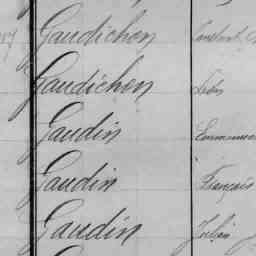 Gaudichon
Gaudichon Léon
Gaudin
Gaudin François
Gaudin Julien